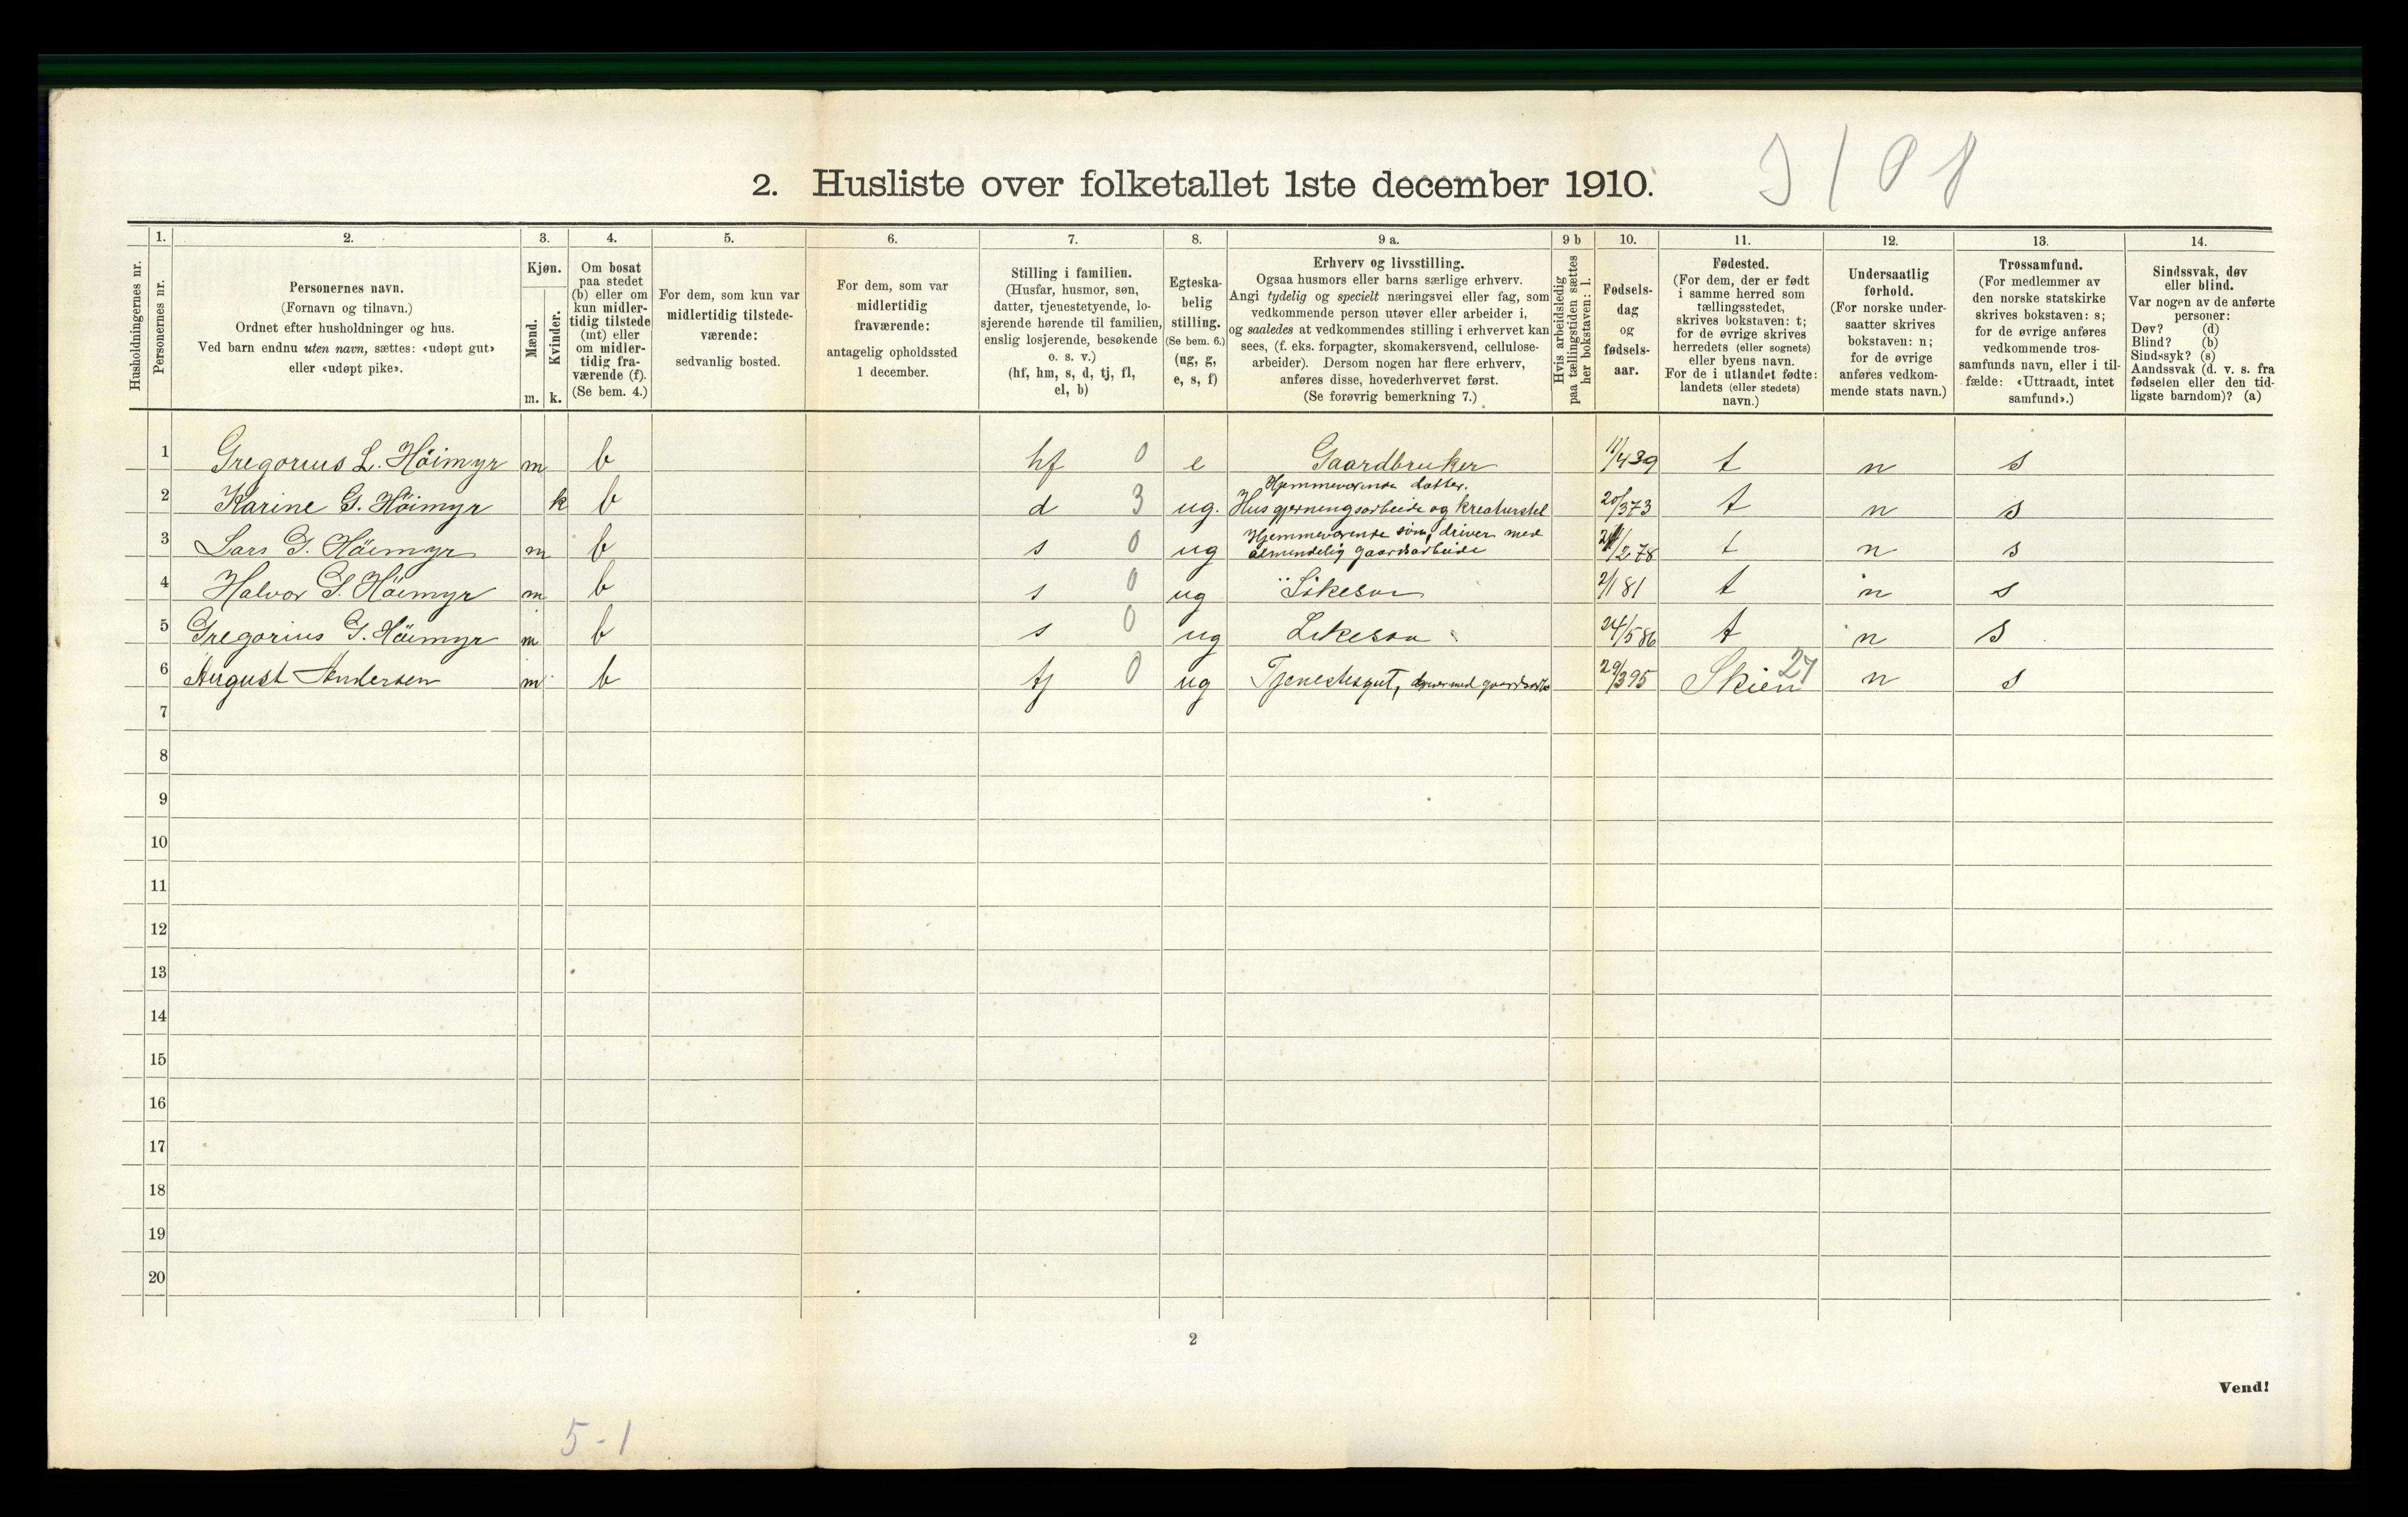 2. Husliste over folketallet 1ste december 1910.
1. 2. 3. 4. 5. 6. 7. 8. 9 a. 9 b 10. 11. 12. 13. 14.
Husholdningernes nr.
Personernes nr.
Personernes navn.
(Fornavn og tilnavn.)
Ordnet efter husholdninger og hus.
Ved barn endnu uten navn, sættes: «udøpt gut»
eller «udøpt pike».
Kjøn.
Mænd.
Kvinder.
m. k.
Om bosat
paa stedet
(b) eller om
kun midler-
tidig tilstede
(mt) eller
om midler-
tidig fra-
værende (f).
(Se bem. 4.)
For dem, som kun var
midlertidig tilstede-
værende:
sedvanlig bosted.
For dem, som var
midlertidig
fraværende:
antagelig opholdssted
1 december.
Stilling i familien.
(Husfar, husmor, søn,
datter, tjenestetyende, lo-
sjerende hørende til familien,
enslig losjerende, besøkende
o. s. v.)
(hf, hm, s, d, tj, fl,
el, b)
Egteska-
belig
stilling.
(Se bem. 6.)
(ug, g,
e, s, f)
Erhverv og livsstilling.
Ogsaa husmors eller barns særlige erhverv.
Angi tydelig og specielt næringsvei eller fag, som
vedkommende person utøver eller arbeider i,
og saaledes at vedkommendes stilling i erhvervet kan
sees, (f. eks. forpagter, skomakersvend, cellulose-
arbeider). Dersom nogen har flere erhverv,
anføres disse, hovederhvervet først.
(Se forøvrig bemerkning 7.)
Hvis arbeidsledig
paa tællingstiden sættes
her bokstaven: l.
Fødsels-
dag
og
fødsels-
aar.
Fødested.
(For dem, der er født
i samme herred som
tællingsstedet,
skrives bokstaven: t;
for de øvrige skrives
herredets (eller sognets)
eller byens navn.
For de i utlandet fødte:
landets (eller stedets)
navn.)
Undersaatlig
forhold.
(For norske under-
saatter skrives
bokstaven: n;
for de øvrige
anføres vedkom-
mende stats navn.)
Trossamfund.
(For medlemmer av
den norske statskirke
skrives bokstaven: s;
for de øvrige anføres
vedkommende tros-
samfunds navn, eller i til-
fælde: «Uttraadt, intet
samfund».)
Sindssvak, døv
eller blind.
Var nogen av de anførte
personer:
Døv? (d)
Blind? (b)
Sindssyk? (s)
Aandssvak (d. v. s. fra
fødselen eller den tid-
ligste barndom)? (a)
1 Gregorius L. Höimyr m b hf 0 e Gaardbruker 11/4 39 t n s
Hjemmeværende datter.
2 Karine G. Höimyr k b d 3 ug. Husgjerningsarbeide og kreaturstel 20/3 73 t n s
Hjemmeværende søn, driver med
3 Lars G. Höimyr m b s 0 ug almindelig gaardsarbeide /2 78 t n s
4 Halvor G. Höimyr m b s 0 ug Likesaa 2/1 81 t n s
5 Gregorius G. Höimyr m b s 0 ug Likesaa 24/5 86 t n s
6 August Andersen m b tj 0 ug Tjenestegut, 29/3 95 Skien 27 n s
7
8
9
10
11
12
13
14
15
16
17
18
19
20
2
Vend!
5-1